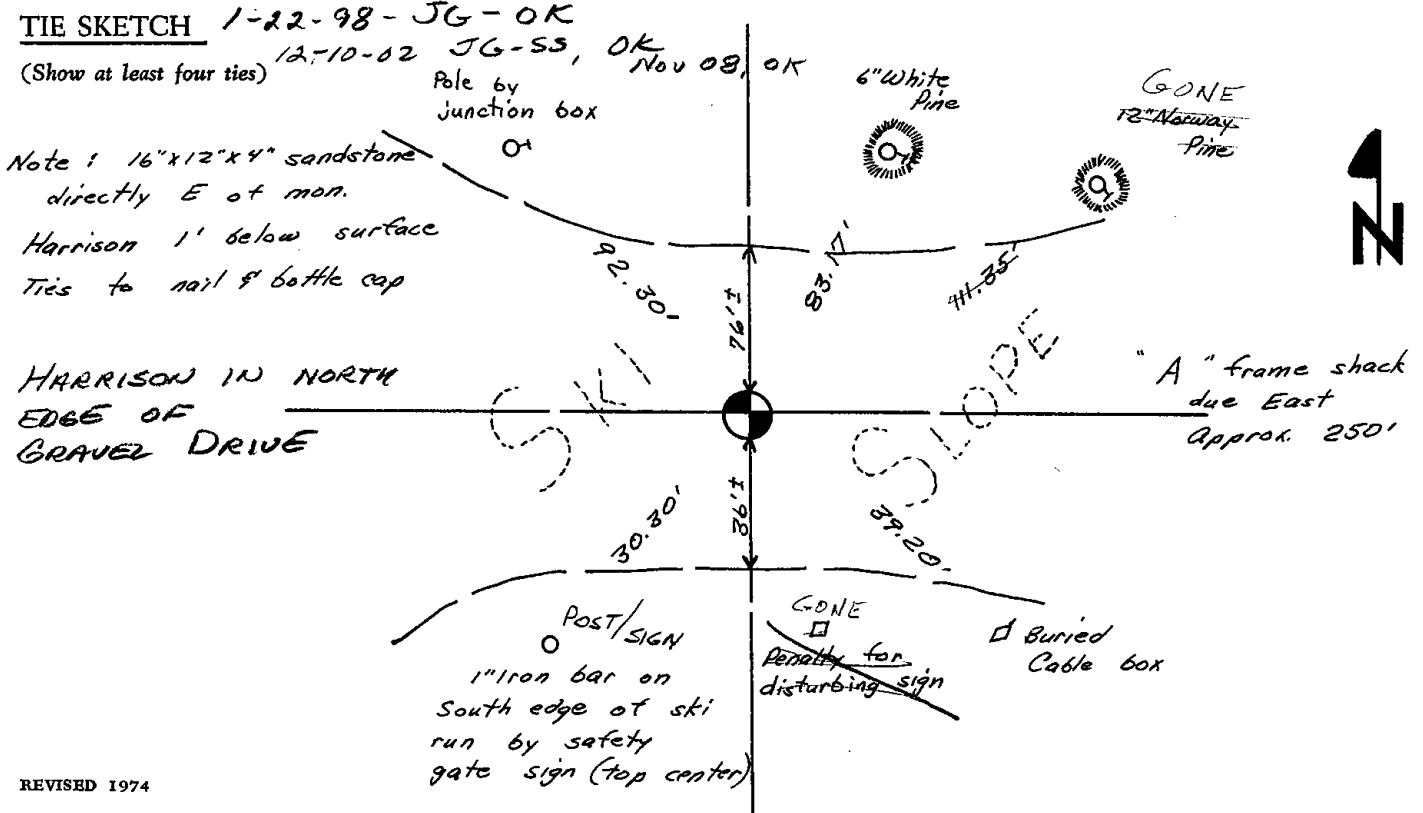 TIE SKETCH 1-22-98 - JG - OK
(Show at least four ties) 12-10-02 JG-SS, OK
Nov 08, OK
Pole by
junction box
6" White
Pine
GONE
12" Norway
Pine
Note : 16"x12"x4" sandstone
directly E of mon.
Harrison 1' below surface
Ties to nail & bottle cap
N
92.30'
76'±
83.17'
HARRISON IN NORTH
EDGE OF
GRAVEL DRIVE
SKI SLOPE
"A" frame shack
due East
approx. 250'
30.30'
36'±
39.20'
POST/SIGN
1" Iron bar on
South edge of ski
run by safety
gate sign (top center)
GONE
Penalty for
disturbing sign
Buried
Cable box
REVISED 1974